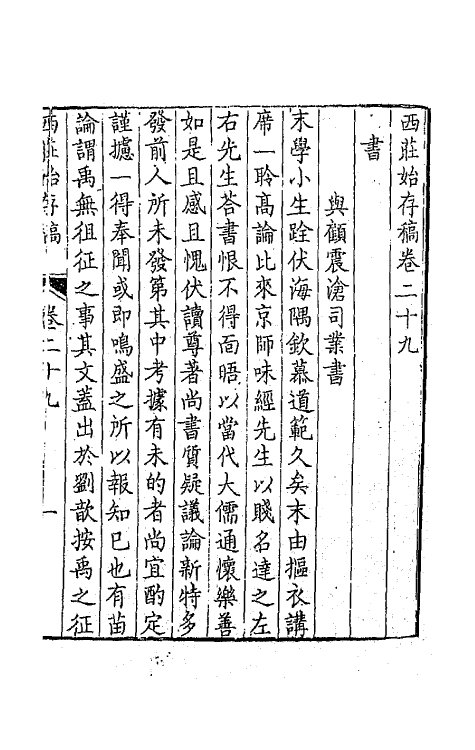 西莊始存稿卷二十九
書
與顧震滄司業書
末學小生跧伏海隅欽慕道範久矣末由摳衣講
席一聆高論比來京師味經先生以賤名達之左
右先生荅書恨不得面晤以當代大儒通懷樂善
如是且感且愧伏讀尊著尚書質疑議論新特多
發前人所未發第其中考據有未的者尚宜酌定
謹攄一得奉聞或即鳴盛之所以報知已也有苗
論謂禹無徂征之事其文蓋出於劉歆按禹之征
西莊始存稿　卷二十九　一